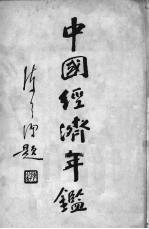 中國經濟年鑑
題